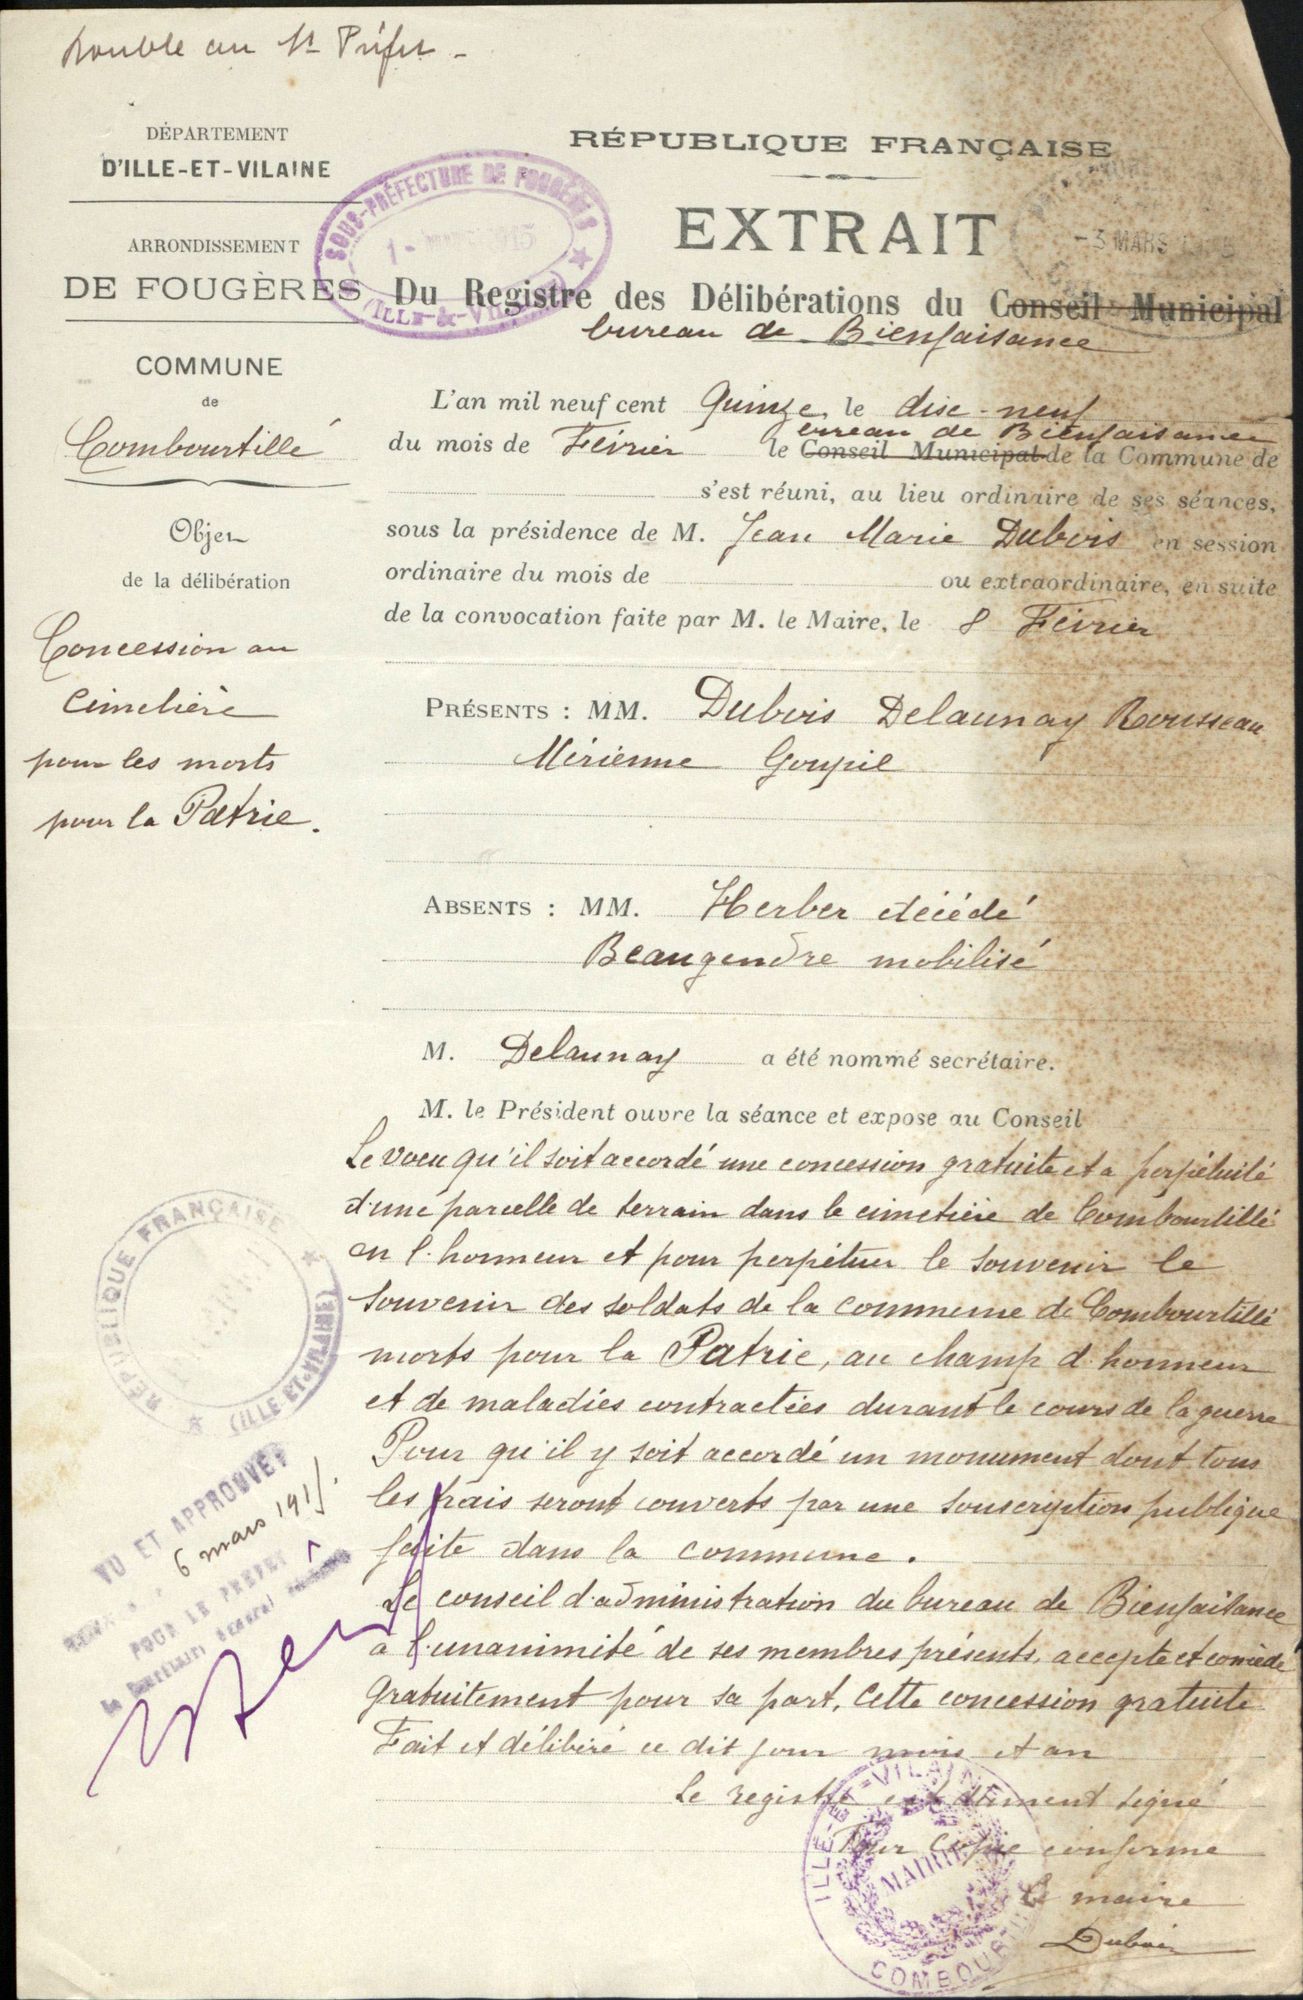 Double au Ss Préfet -
DÉPARTEMENT
D'ILLE-ET-VILAINE
ARRONDISSEMENT
DE FOUGÈRES
COMMUNE
de
Combourtillé
Objet
de la délibération
Concession au
cimetière
pour les morts
pour la Patrie.
RÉPUBLIQUE FRANÇAISE
EXTRAIT
Du Registre des Délibérations du Conseil Municipal
bureau de Bienfaisance
SOUS-PRÉFECTURE DE FOUGÈRES
(ILLE-&-VILAINE)
-3 MARS
L'an mil neuf cent Quinze, le dix-neuf
bureau de Bienfaisance
du mois de Février le Conseil Municipal de la Commune de
s'est réuni, au lieu ordinaire de ses séances,
sous la présidence de M. Jean Marie Dubois en session
ordinaire du mois de ou extraordinaire, en suite
de la convocation faite par M. le Maire, le 8 Février
PRÉSENTS : MM. Dubois Delaunay Rousseau
Mérienne Goupil
ABSENTS : MM. Herber décédé
Beaugendre mobilisé
M. Delaunay a été nommé secrétaire.
M. le Président ouvre la séance et expose au Conseil
Le voeu qu'il soit accordé une concession gratuite et a perpétuité
d'une parcelle de terrain dans le cimetière de Combourtillé
en l'honneur et pour perpétuer le souvenir le
souvenir des soldats de la commune de Combourtillé
morts pour la Patrie, au champ d'honneur
et de maladies contractées durant le cours de la guerre
Pour qu'il y soit accordé un monument dont tous
les frais seront couverts par une souscription publique
faite dans la commune.
Le conseil d'administration du bureau de Bienfaisance
a l'unanimité de ses membres présents, accepte et concède
gratuitement pour sa part, cette concession gratuite
Fait et délibéré ce dit jour mois et an
Le registre est dûment signé
Pour copie conforme
Le maire
Dubois
RÉPUBLIQUE FRANÇAISE
(ILLE-ET-VILAINE)
VU ET APPROUVÉ
6 mars 1915.
POUR LE PRÉFET
le Secrétaire Général
ILLE-ET-VILAINE
MAIRIE